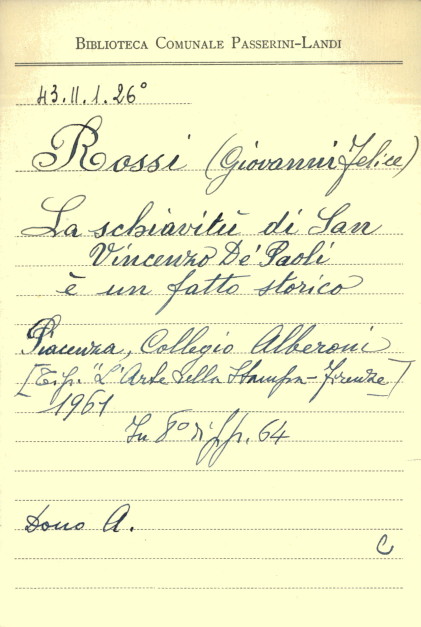 BIBLIOTECA COMUNALE PASSERINI-LANDI
43.II.1.26°
Rossi (Giovanni Felice)
La schiavitù di San
Vincenzo De' Paoli
è un fatto storico
Piacenza, Collegio Alberoni
[Tip. "L'Arte della Stampa - Firenze]
1961
In 8° di pp. 64
Dono A.
C